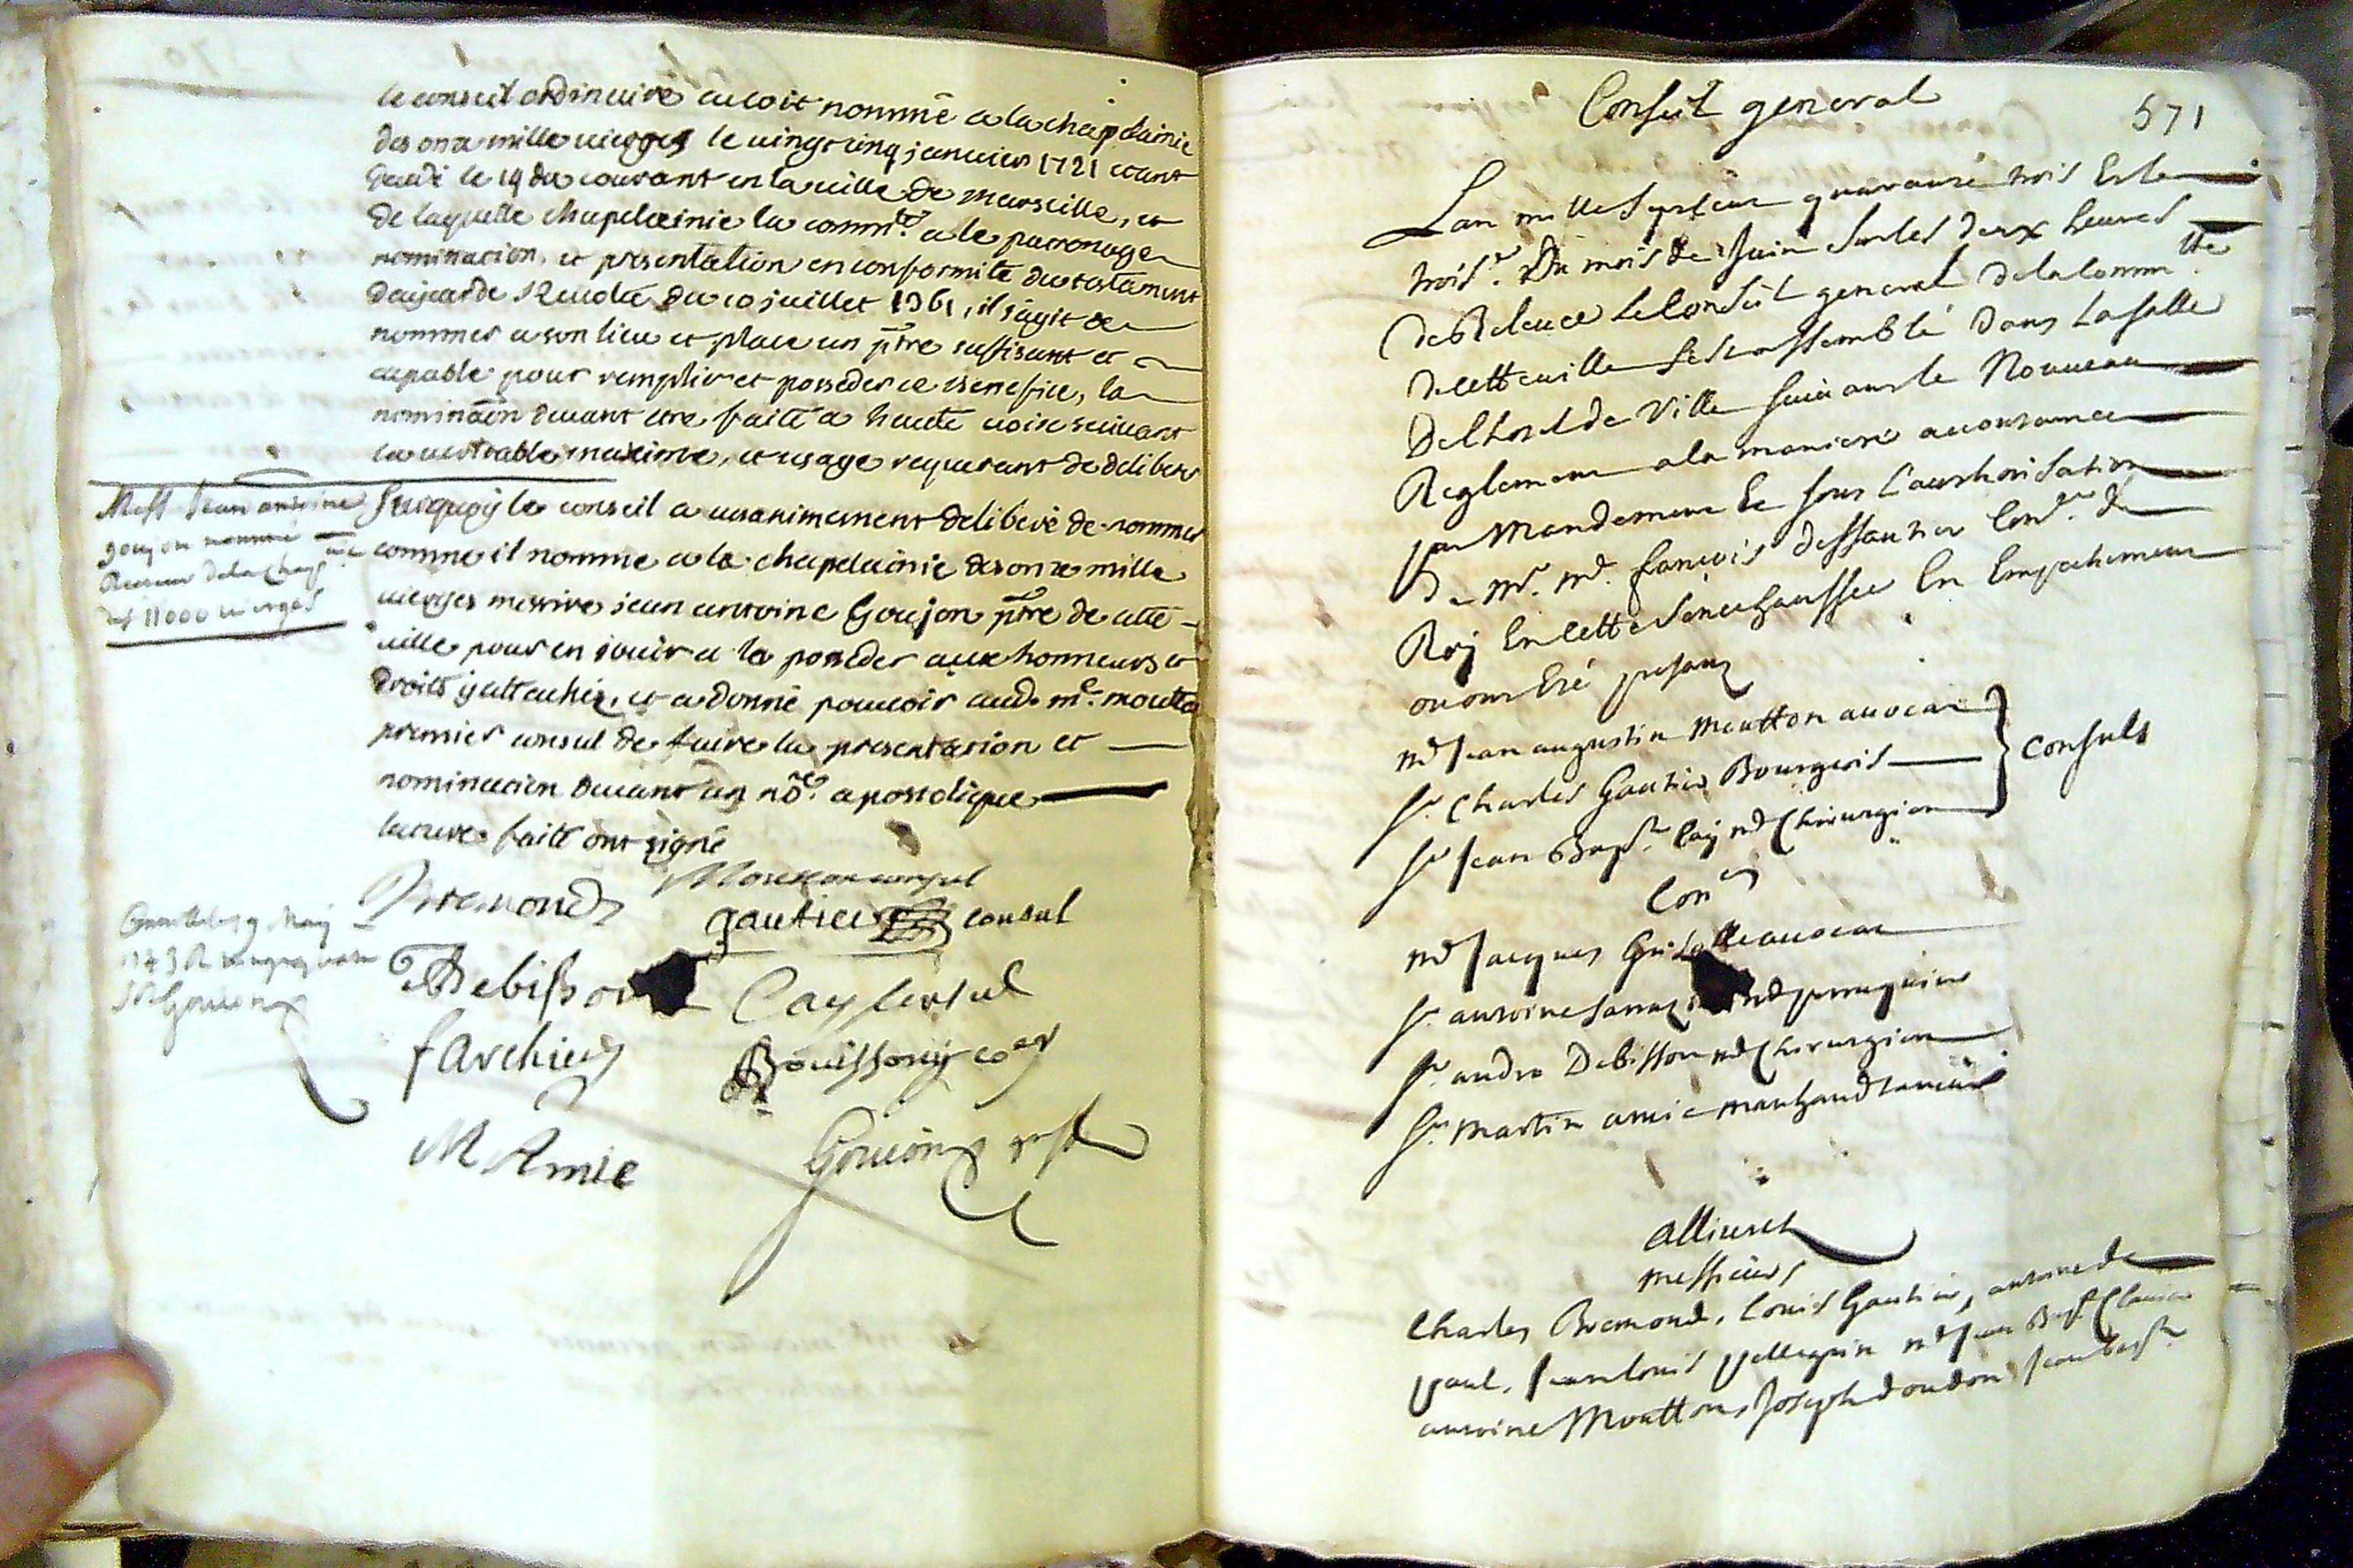 le conseil ordinaire avoit nommé a la chapelainie
des onze mille vierges le vingt cinq janvier 1721 etant
decedé le 19 du courant en la ville de marseille, et
de laquelle chapelainie la comm.té a le patronage
nomination, et presentation en conformité du testament
du 10 juillet 1361, il s'agit de
nommer a son lieu et place un ptre suffisant et
capable pour remplir et posseder ce benefice, la
nominaõn devant etre faite a haute voix suivant
la veritable maxime, et usage requerant de deliberer
Mess.e Jean antoine
goujon nommé
Recteur de la Chap.nie
des 11000 vierges
Surquoy le conseil a unanimement deliberé de nommer
comme il nomme a la chapelainie des onze mille
vierges messire jean antoine Goujon ptre de cette
ville pour en jouir et la posseder aux honneurs et
droits y attachés, et a donné pouvoir aud. mr. moutton
premier consul de faire la presentation et
nomination devant un no.re apostolique
lecture faite ont signé
Bremond
Moutton consul
gautier consul
9 May
1743
Debisson
Cay consul
f Archier
Bouissony
M Amic
571
Conseil general
Lan mille sept cent quarante trois Et le
trois.e Du mois de Juin sur les deux heures
de Relevee Le Conseil general de la Comm.té
de cette ville sest assemblé dans La salle
de lhotel de Ville suivant le Nouveau
Reglement a la maniere accoutumee
par Mandement Et sous Lauthorisation
De Mr. Me. francois dessautier Con.er du
Roy En cette Senechaussee En Empechement
ou ont Eté presens
Me Jean augustin Moutton avocat
Sr. Charles Gautier Bourgeois
Consuls
Sr Jean Bapt.e Cay me Chirurgien
Con.ers
Me Jacques avocat
Sr. antoine me perruquier
Sr. andre Debisson me Chirurgien
Sr. Martin amic marchand taneur
Allivrés
Messieurs
Charles Bremond, Louis Gautier, antoine de
paul, Jean louis pellegrin me Jean Bapt
antoine Moutton, Joseph doudon Jean bapt.e